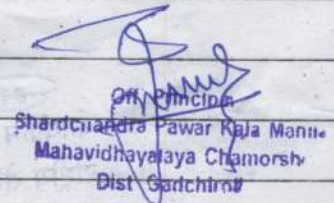 Off. Principal
Shardchandra Pawar Kala Mahi.
Mahavidhayalaya Chamorshi
Dist Gadchiroli